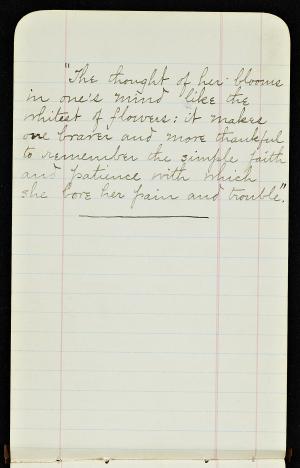 "The thought of her blooms
in one's mind like the
whitest of flowers: it makes
one braver and more thankful
to remember the simple faith
and patience with which
she bore her pain and trouble."